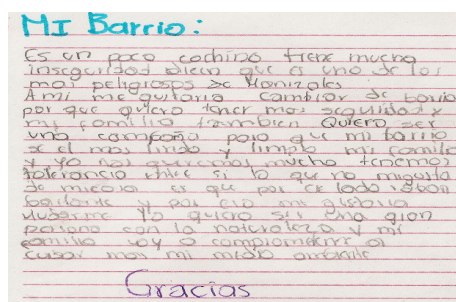 MI Barrio:
Es un poco cochino tiene mucha
inseguridad dicen que es uno de los
mas peligrosos de Manizales
Ami me gustaria cambiar de barrio
por que quiero tener mas seguridad y
mi familia tambien Quiero ser
una campaña para que mi barrio
se el mas lindo y limpio mi familia
y yo nos queremos mucho tenemos
tolerancia si lo que no migusta
de micasa es que por ese lado roban
bastante y por eso mi gustaria
mudarme Yo quiero ser una gran
persona con la naturaleza y mi
familia voy a comprometerme a
cuidar mas mi medio ambiente
Gracias